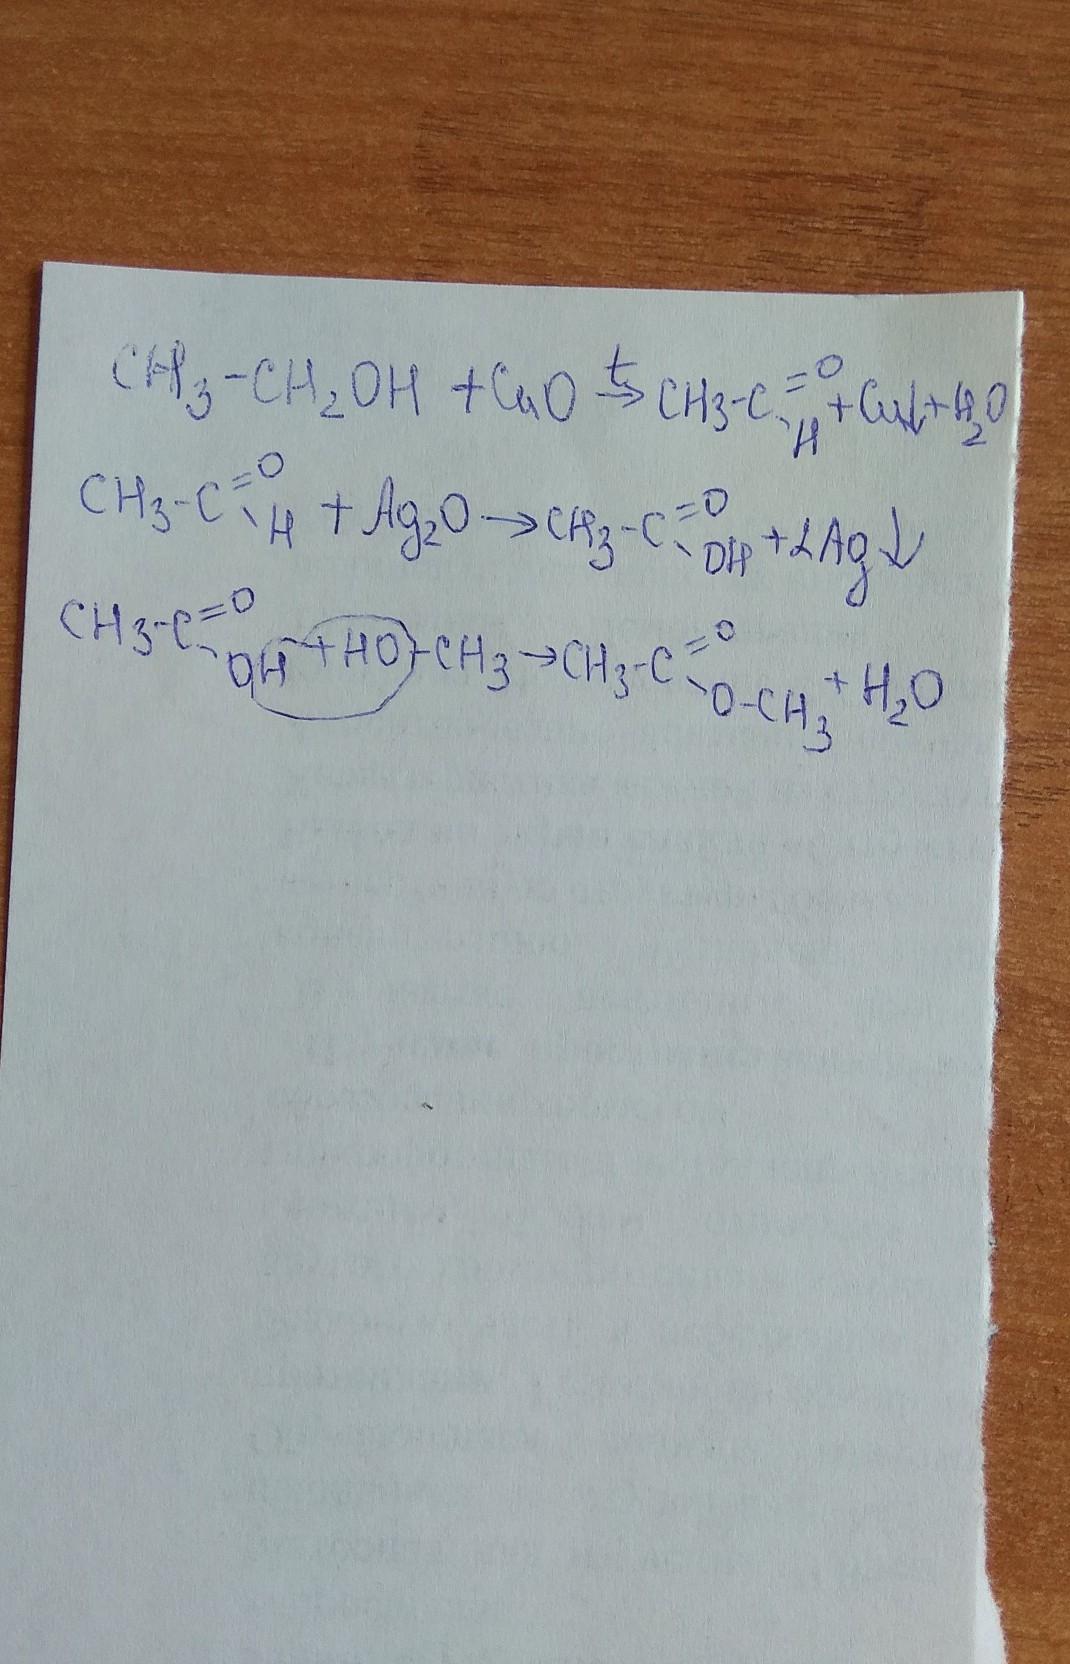 CH3-CH2OH + CuO t→ CH3-C=O-H + Cu↓ + H2O
CH3-C=O-H + Ag2O → CH3-C=O-OH + 2Ag↓
CH3-C=O-OH + HO-CH3 → CH3-C=O-O-CH3 + H2O